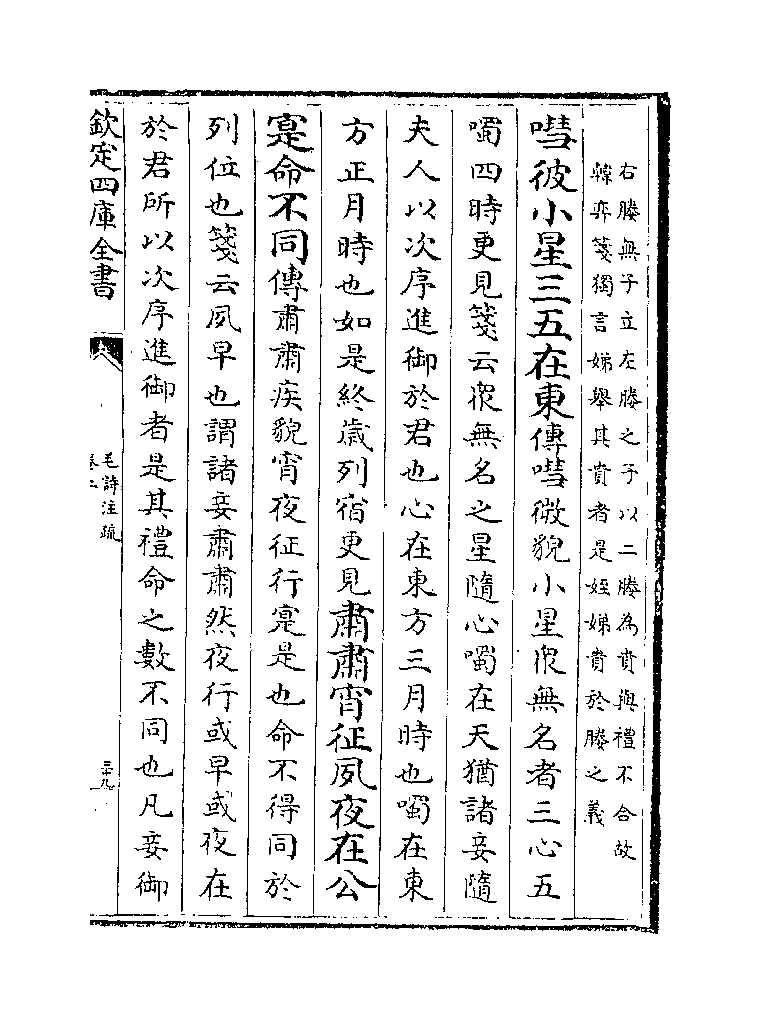 右媵無子立左媵之子以二媵為貴與禮不合故
韓奕箋獨言娣舉其貴者是姪娣貴於媵之義
嘒彼小星三五在東傳嘒微貌小星衆無名者三心五
噣四時更見箋云衆無名之星隨心噣在天猶諸妾隨
夫人以次序進御於君也心在東方三月時也噣在東
方正月時也如是終歲列宿更見肅肅宵征夙夜在公
寔命不同傳肅肅疾貌宵夜征行寔是也命不得同於
列位也箋云夙早也謂諸妾肅肅然夜行或早或夜在
於君所以次序進御者是其禮命之數不同也凡妾御
欽定四庫全書
毛詩注疏
卷二
三十九